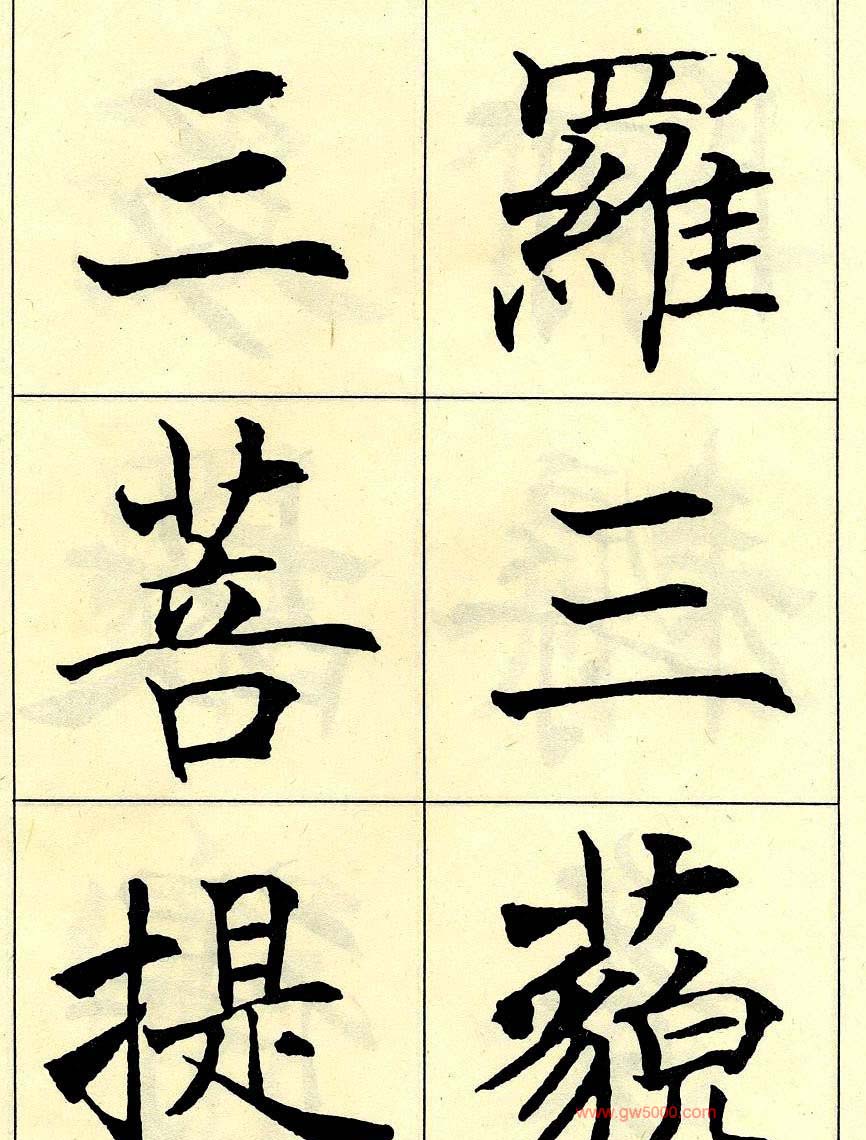 羅三藐
三菩提
www.gw5000.com